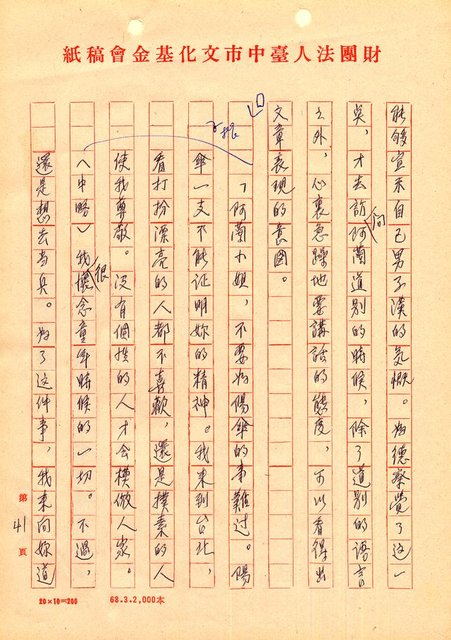 財團法人臺中市文化基金會稿紙
能够宣示自己男子漢的氣慨。為德察覺了這一
奌，才去訪向阿蘭道別的時候，除了道別的語言
之外，心裏急躁地要講話的態度，可以看得出
文章表現的意圖。
「阿蘭小姐，不要為陽傘的事難過。陽
傘一支不能証明妳的精神。我來到台北，
看打扮漂亮的人都不喜歡，還是樸素的人
使我尊敬。沒有個性的人才会模倣人家。
（中略）我很懷念童年時候的一切。不過，
還是想去当兵。為了这件事，我來向妳道
第41頁
20×10=200
68.3.2,000本